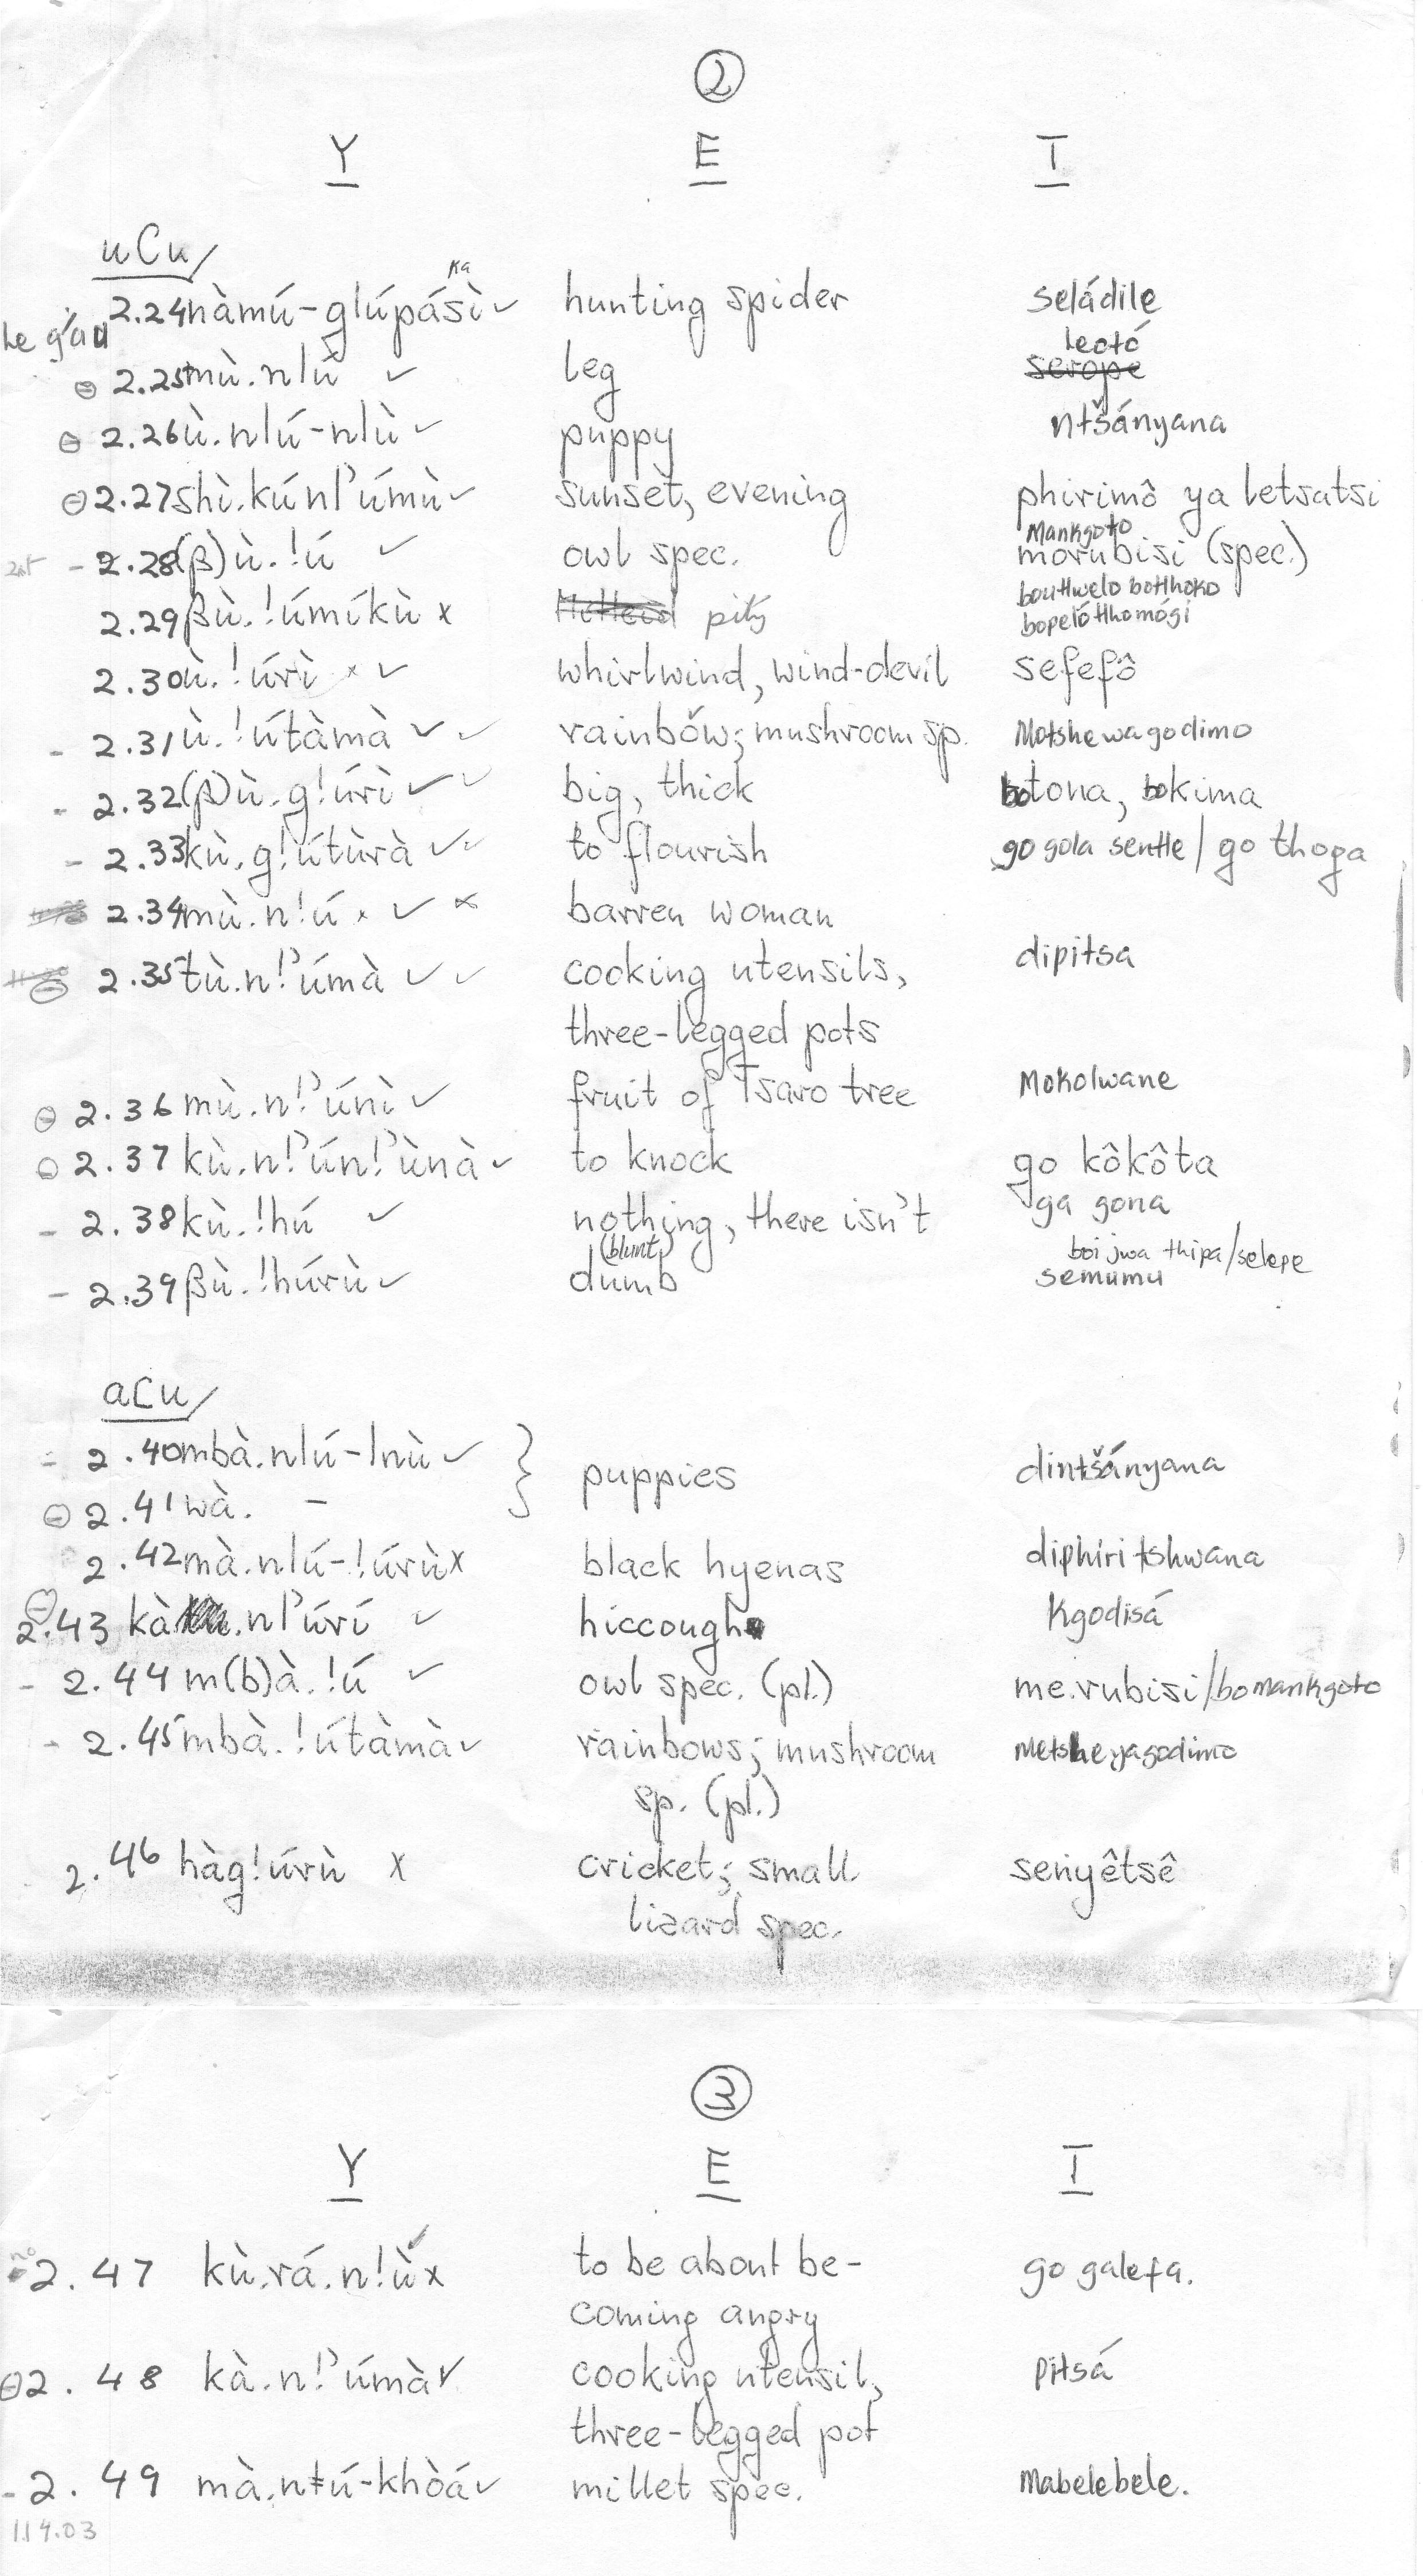 ②
Y E T
uCu/
ka
2.24 nàmú-gǀúpásì ✓ hunting spider seládile
leotó
2.25 mù.nǀú ✓ leg serope
2.26 ù.nǀú-nǀù ✓ puppy ntšányana
2.27 shì.kúnǀʾúmù ✓ sunset, evening phirimô ya letsatsi
Mankgoto
- 2.28 (β)ù.!ú ✓ owl spec. morubisi (spec.)
boutlwelo botlhoko
2.29 βù.!úmíkù x pity bopelótlhomógi
2.30 ù.!úrì x ✓ whirlwind, wind-devil sefefô
- 2.31 ù.!útàmà ✓ ✓ rainbow; mushroom sp. Motshewagodimo
- 2.32 (β)ù.g!úrì ✓ ✓ big, thick botona, bokima
- 2.33 kù.g!útùrà ✓ ✓ to flourish go gola sentle / go thoga
2.34 mù.n!ú x ✓ x barren woman
2.35 tù.n!ʾúmà ✓ ✓ cooking utensils, dipitsa
three-legged pots
2.36 mù.n!ʾúnì ✓ fruit of Tsaro tree Mokolwane
2.37 kù.n!ʾún!ʾùnà ✓ to knock go kôkôta
- 2.38 kù.!hú ✓ nothing, there isn't ga gona
(blunt) boi jwa thipa/selepe
- 2.39 βù.!húrù ✓ dumb semumu
aCu/
- 2.40 mbà.nǀú-ǀnù ✓ } puppies dintšányana
2.41 wà. -
2.42 mà.nǀú-!úrù x black hyenas diphiri tshwana
2.43 kà.nǀʾúrí ✓ hiccough Kgodisá
- 2.44 m(b)à.!ú ✓ owl spec. (pl.) me.rubisi/bomankgoto
- 2.45 mbà.!útàmà ✓ rainbows; mushroom Metsheyagodimo
sp. (pl.)
2.46 hàg!úrù x cricket; small senyêtsê
lizard spec.
③
Y E T
2.47 kù.rá.n!ù ✓ x to be about be- go galefa.
coming angry
2.48 kà.n!ʾúmà ✓ cooking utensil, Pitsá
three-legged pot
- 2.49 mà.nǂú-khòá ✓ millet spec. Mabelebele.
11.9.03